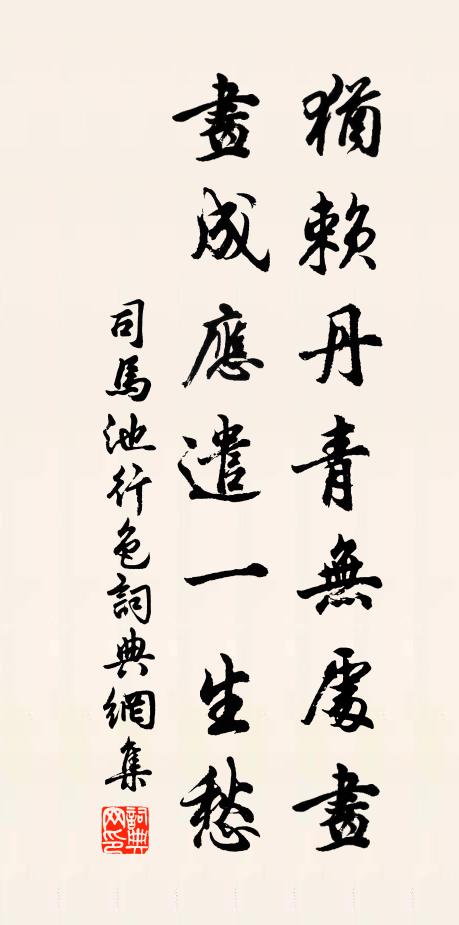 猶賴丹青無處畫
畫成應遣一生愁
司馬池行色詞典網集
詞典網印